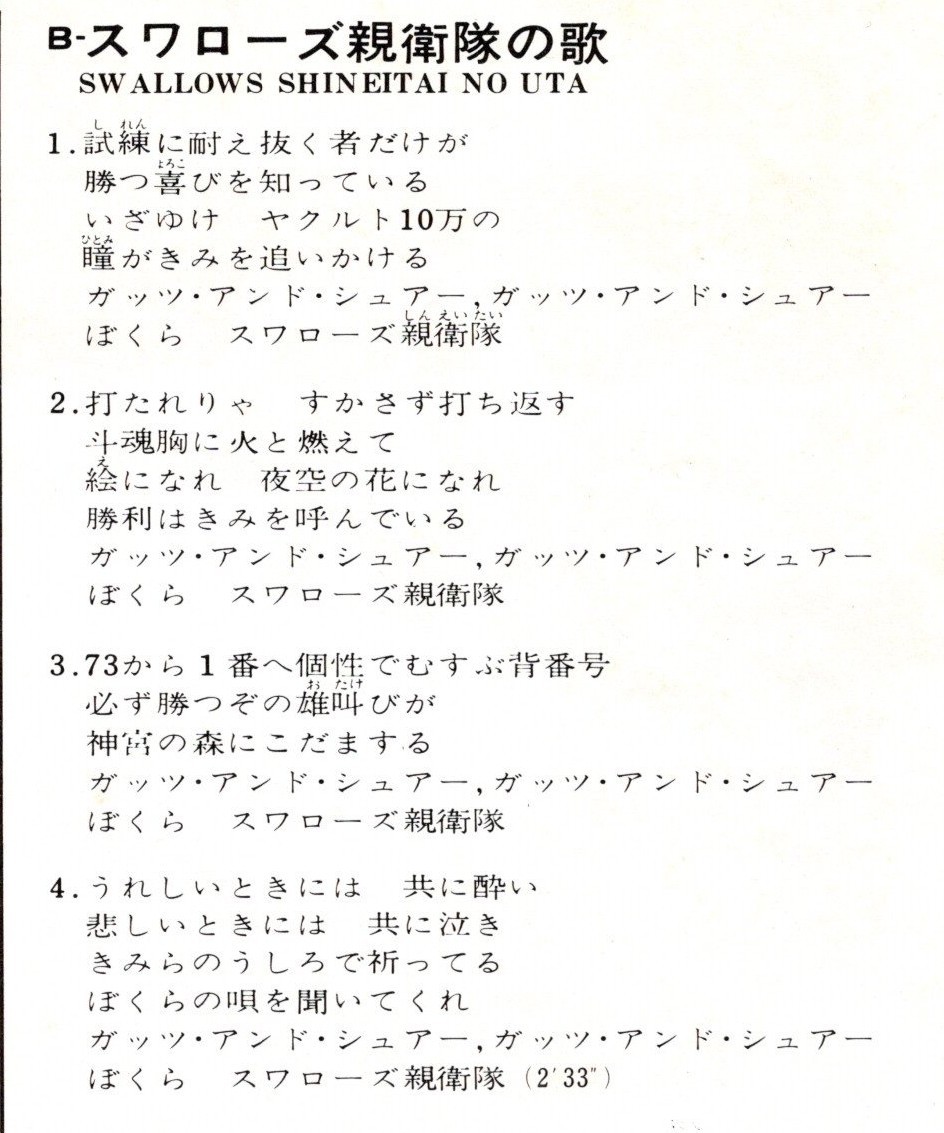 B-スワローズ親衛隊の歌
SWALLOWS SHINEITAI NO UTA
1.試練に耐え抜く者だけが
勝つ喜びを知っている
いざゆけ　ヤクルト10万の
瞳がきみを追いかける
ガッツ・アンド・シュアー,ガッツ・アンド・シュアー
ぼくら　スワローズ親衛隊
2.打たれりゃ　すかさず打ち返す
斗魂胸に火と燃えて
絵になれ　夜空の花になれ
勝利はきみを呼んでいる
ガッツ・アンド・シュアー,ガッツ・アンド・シュアー
ぼくら　スワローズ親衛隊
3.73から1番へ個性でむすぶ背番号
必ず勝つぞの雄叫びが
神宮の森にこだまする
ガッツ・アンド・シュアー,ガッツ・アンド・シュアー
ぼくら　スワローズ親衛隊
4.うれしいときには　共に酔い
悲しいときには　共に泣き
きみらのうしろで祈ってる
ぼくらの唄を聞いてくれ
ガッツ・アンド・シュアー,ガッツ・アンド・シュアー
ぼくら　スワローズ親衛隊（2′33″）